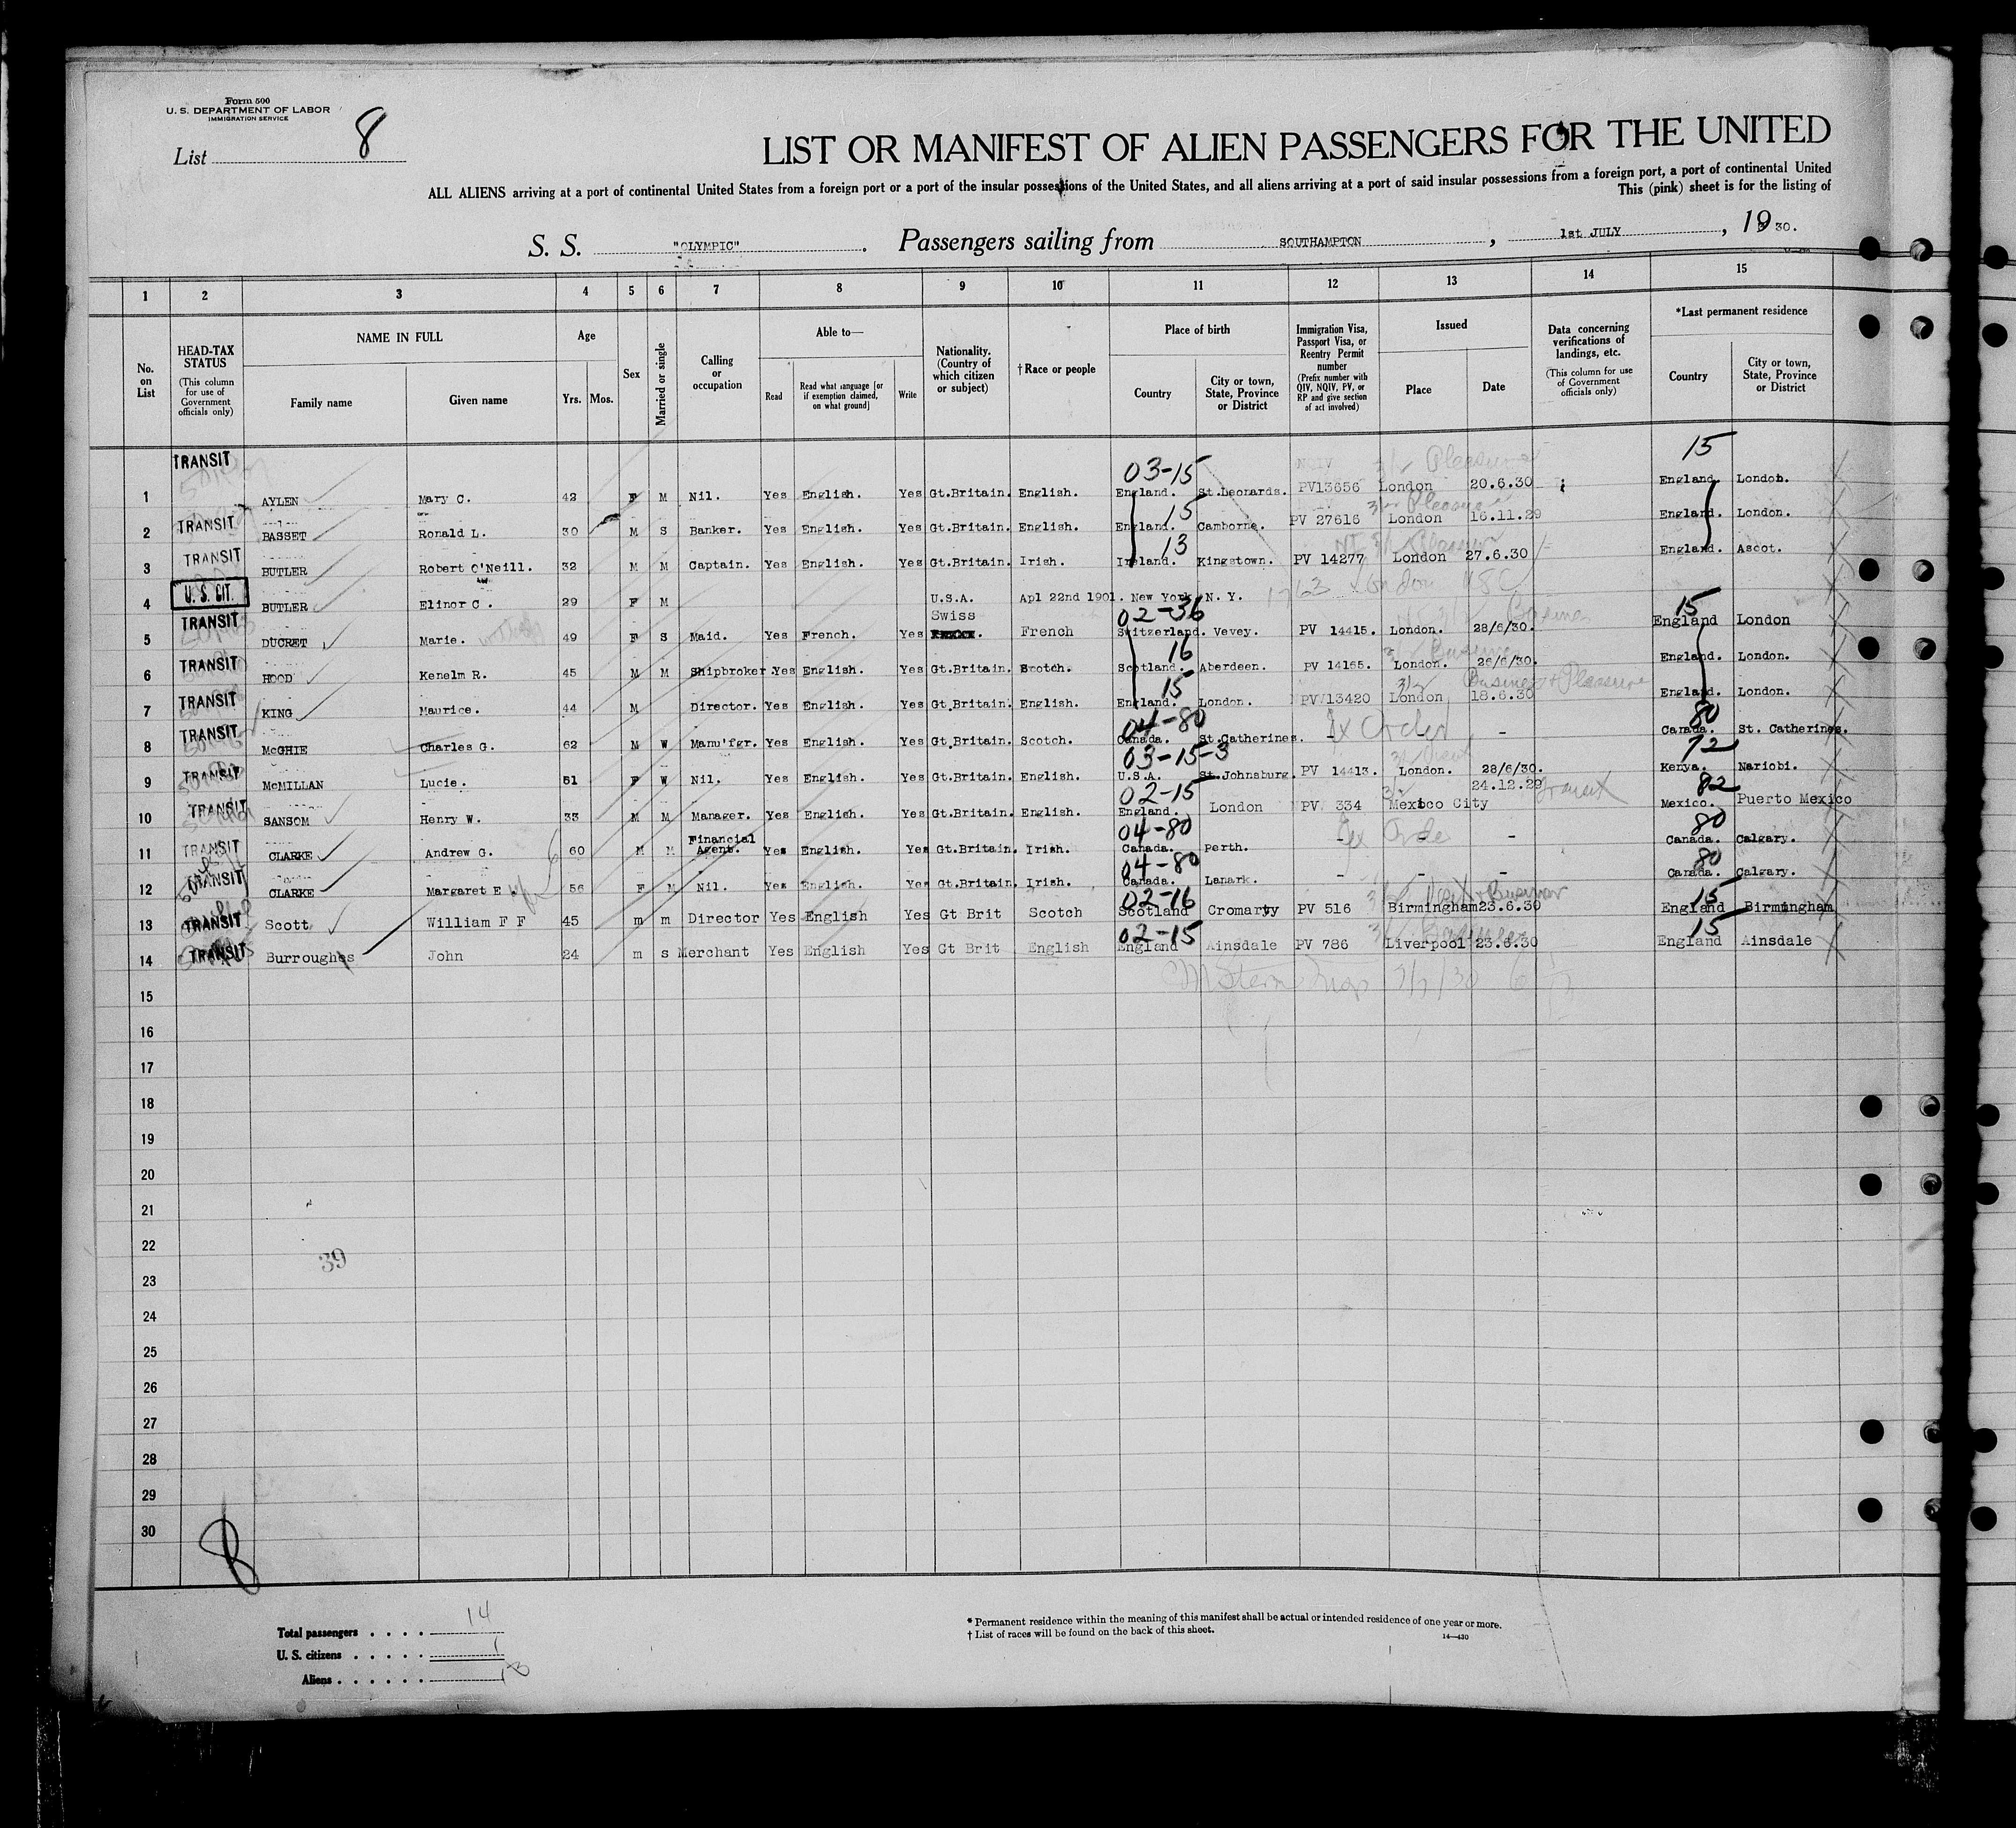 Form 500
U. S. DEPARTMENT OF LABOR
IMMIGRATION SERVICE
List 8
LIST OR MANIFEST OF ALIEN PASSENGERS FOR THE UNITED
ALL ALIENS arriving at a port of continental United States from a foreign port or a port of the insular possessions of the United States, and all aliens arriving at a port of said insular possessions from a foreign port, a port of continental United
This (pink) sheet is for the listing of
S. S. "OLYMPIC". Passengers sailing from SOUTHAMPTON, 1st JULY, 1930.
1 2 3 4 5 6 7 8 9 10 11 12 13 14 15
No. on List
HEAD-TAX STATUS (This column for use of Government officials only)
NAME IN FULL Family name Given name
Age Yrs. Mos.
Sex
Married or single
Calling or occupation
Able to— Read Read what language [or if exemption claimed, on what ground] Write
Nationality. (Country of which citizen or subject)
†Race or people
Place of birth Country City or town, State, Province or District
Immigration Visa, Passport Visa, or Reentry Permit number (Prefix number with QIV, NQIV, PV, or RP and give section of act involved)
Issued Place Date
Data concerning verifications of landings, etc. (This column for use of Government officials only)
*Last permanent residence Country City or town, State, Province or District
TRANSIT 03-15 Pleasure 15
1 AYLEN Mary C. 42 F M Nil. Yes English. Yes Gt.Britain. English. England. St.Leonards. PV13656 London 20.6.30 England. London.
TRANSIT 15 Pleasure
2 BASSET Ronald L. 30 M S Banker. Yes English. Yes Gt.Britain. English. England. Camborne. PV 27616 London 16.11.29 England. London.
TRANSIT 13
3 BUTLER Robert O'Neill. 32 M M Captain. Yes English. Yes Gt.Britain. Irish. Ireland. Kingstown. PV 14277 London 27.6.30 England. Ascot.
U. S. CIT.
4 BUTLER Elinor C. 29 F M U.S.A. Apl 22nd 1901. New York N. Y.
TRANSIT Swiss 02-36 15
5 DUCRET Marie. 49 F S Maid. Yes French. Yes French Switzerland. Vevey. PV 14415. London. 28/6/30. England London
TRANSIT 16 Business
6 HOOD Kenelm R. 45 M M Shipbroker. Yes English. Yes Gt.Britain. Scotch. Scotland. Aberdeen. PV 14165. London. 26/6/30. England. London.
TRANSIT 15 Business + Pleasure
7 KING Maurice. 44 M Director. Yes English. Yes Gt.Britain. English. England. London. PV 13420 London 18.6.30 England. London.
TRANSIT 04-80 Ex Order 80
8 McGHIE Charles G. 62 M W Manu'fgr. Yes English. Yes Gt.Britain. Scotch. Canada. St.Catherines. - - Canada. St. Catherines.
TRANSIT 03-15-3 72
9 McMILLAN Lucie. 51 F W Nil. Yes English. Yes Gt.Britain. English. U.S.A. St.Johnsburg. PV 14413. London. 28/6/30. Kenya. Nariobi.
TRANSIT 02-15 24.12.29 Transit 82
10 SANSOM Henry W. 33 M M Manager. Yes English. Yes Gt.Britain. English. England. London PV 334 Mexico City Mexico. Puerto Mexico
TRANSIT Financial 04-80 80
11 CLARKE Andrew G. 60 M M Agent. Yes English. Yes Gt.Britain. Irish. Canada. Perth. - - - Canada. Calgary.
TRANSIT 04-80 80
12 CLARKE Margaret E. 56 F M Nil. Yes English. Yes Gt.Britain. Irish. Canada. Lanark. - - - Canada. Calgary.
TRANSIT 02-16 15
13 Scott William F F 45 m m Director Yes English Yes Gt Brit Scotch Scotland Cromarty PV 516 Birmingham 23.6.30 England Birmingham
TRANSIT 02-15 15
14 Burroughes John 24 m s Merchant Yes English Yes Gt Brit English England Ainsdale PV 786 Liverpool 23.6.30 England Ainsdale
15
16
17
18
19
20
21
22
39
23
24
25
26
27
28
29
30
8
Total passengers . . . . 14
U. S. citizens . . . . . 1
Aliens . . . . . . 13
* Permanent residence within the meaning of this manifest shall be actual or intended residence of one year or more.
† List of races will be found on the back of this sheet.
14—430